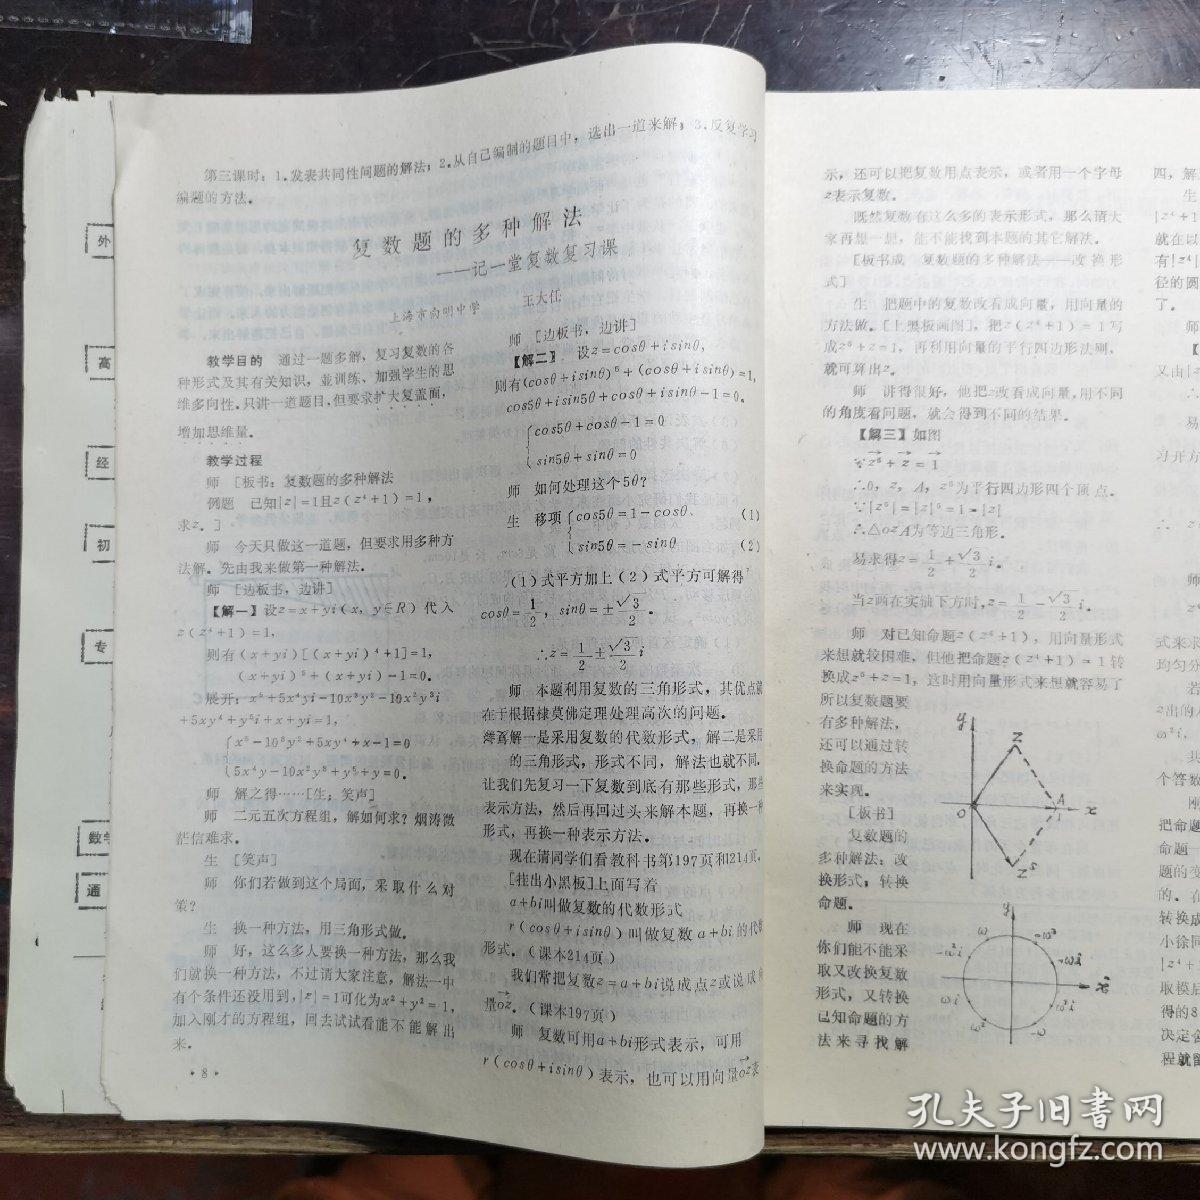 第三课时：1.发表共同性问题的解法；2.从自己编制的题目中，选出一道来解；3.反复学习
编题的方法。
复数题的多种解法
——记一堂复数复习课
上海市向明中学 王大任
教学目的 通过一题多解，复习复数的各
种形式及其有关知识，並训练、加强学生的思
维多向性。只讲一道题目，但要求扩大复盖面，
增加思维量。
教学过程
师 [板书：复数题的多种解法
例题 已知|z|=1且z(z⁴+1)=1，
求z。]
师 今天只做这一道题，但要求用多种方
法解。先由我来做第一种解法。
师 [边板书，边讲]
【解一】设z=x+yi(x，y∈R)代入
z(z⁴+1)=1，
则有(x+yi)[(x+yi)⁴+1]=1，
(x+yi)⁵+(x+yi)-1=0。
展开：x⁵+5x⁴yi-10x³y²-10x²y³i
+5xy⁴+y⁵i+x+yi=1，
x⁵-10³y²+5xy⁴+x-1=0
5x⁴y-10x²y³+y⁵+y=0。
师 解之得……[生：笑声]
师 二元五次方程组，解如何求？烟涛微
茫信难求。
生 [笑声]
师 你们若做到这个局面，采取什么对
策？
生 换一种方法，用三角形式做。
师 好，这么多人要换一种方法，那么我
们就换一种方法，不过请大家注意，解法一中
有个条件还没用到，|z|=1可化为x²+y²=1，
加入刚才的方程组，回去试试看能不能解出
来。
·8·
师 [边板书，边讲]
【解二】 设z=cosθ+isinθ，
则有(cosθ+isinθ)⁵+(cosθ+isinθ)=1，
cos5θ+isin5θ+cosθ+isinθ-1=0。
cos5θ+cosθ-1=0
sin5θ+sinθ=0
师 如何处理这个5θ？
生 移项 cos5θ=1-cosθ， (1)
sin5θ=-sinθ (2)
(1)式平方加上(2)式平方可解得
cosθ=1/2，sinθ=±√3/2。
∴z=1/2±√3/2 i
师 本题利用复数的三角形式，其优点就
在于根据棣莫佛定理处理高次的问题。
解一是采用复数的代数形式，解二是采用
的三角形式，形式不同，解法也就不同。
让我们先复习一下复数到底有那些形式，那些
表示方法，然后再回过头来解本题，再换一种
形式，再换一种表示方法。
现在请同学们看教科书第197页和214页，
[挂出小黑板]上面写着
a+bi叫做复数的代数形式
r(cosθ+isinθ)叫做复数a+bi的代数
形式。(课本214页)
我们常把复数z=a+bi说成点z或说成向
量oz。(课本197页)
师 复数可用a+bi形式表示，可用
r(cosθ+isinθ)表示，也可以用向量oz表
示，还可以把复数用点表示，或者用一个字母
z表示复数。
既然复数有这么多的表示形式，那么请大
家再想一想，能不能找到本题的其它解法。
[板书成 复数题的多种解法——改换形
式]
生 把题中的复数改看成向量，用向量的
方法做。[上黑板画图]，把z(z⁴+1)=1写
成z⁵+z=1，再利用向量的平行四边形法则，
就可算出z。
师 讲得很好，他把z改看成向量，用不同
的角度看问题，就会得到不同的结果。
【解三】如图
∵z⁵+z=1
∴0，z，A，z⁵为平行四边形四个顶点。
∵|z⁵|=|z|⁵=1=|z|
∴△ozA为等边三角形。
易求得z=1/2+√3/2 i。
当z画在实轴下方时，z=1/2-√3/2 i。
师 对已知命题z(z⁴+1)，用向量形式
来想就较困难，但他把命题z(z⁴+1)=1转
换成z⁵+z=1，这时用向量形式来想就容易了
所以复数题要
有多种解法，
还可以通过转
换命题的方法
来实现。
[板书]
复数题的
多种解法：改
换形式；转换
命题。
师 现在
你们能不能采
取又改换复数
形式，又转换
已知命题的方
法来寻找解
y
Z
O
A
1
x
Z⁵
y
ω
-ω²
-ω²i
-ωi
ωi
ω²i
ω²
-ω
x
四，解
生
|z⁴+1
就在以
有|z⁴|
径的圆
了。
师
【
又由|z
∴
易
习开方
∴z
师
式来求
均匀分
若
z出的
ω²i，
共
个答数
刚
把命题
命题一
题的变
的。在
转换成
小徐同
|z⁴+
取模后
得的8
决定舍
程就留
外
高
经
初
专
数学
通
孔夫子旧书网
www.kongfz.com